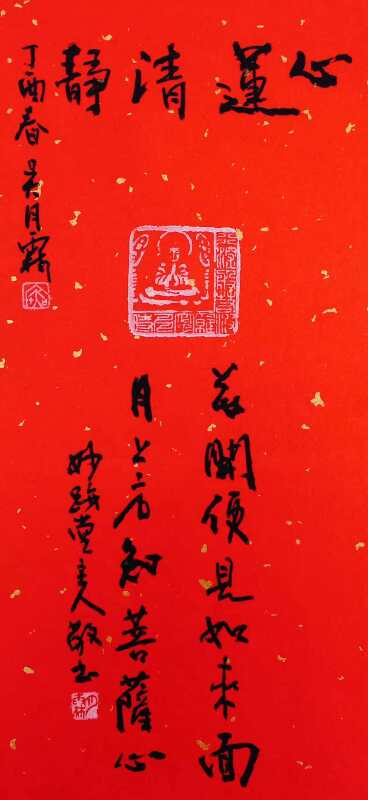 心蓮清静
丁酉春 吴月霖
花開便見如来面
月上方知菩薩心
妙 堂主人敬书